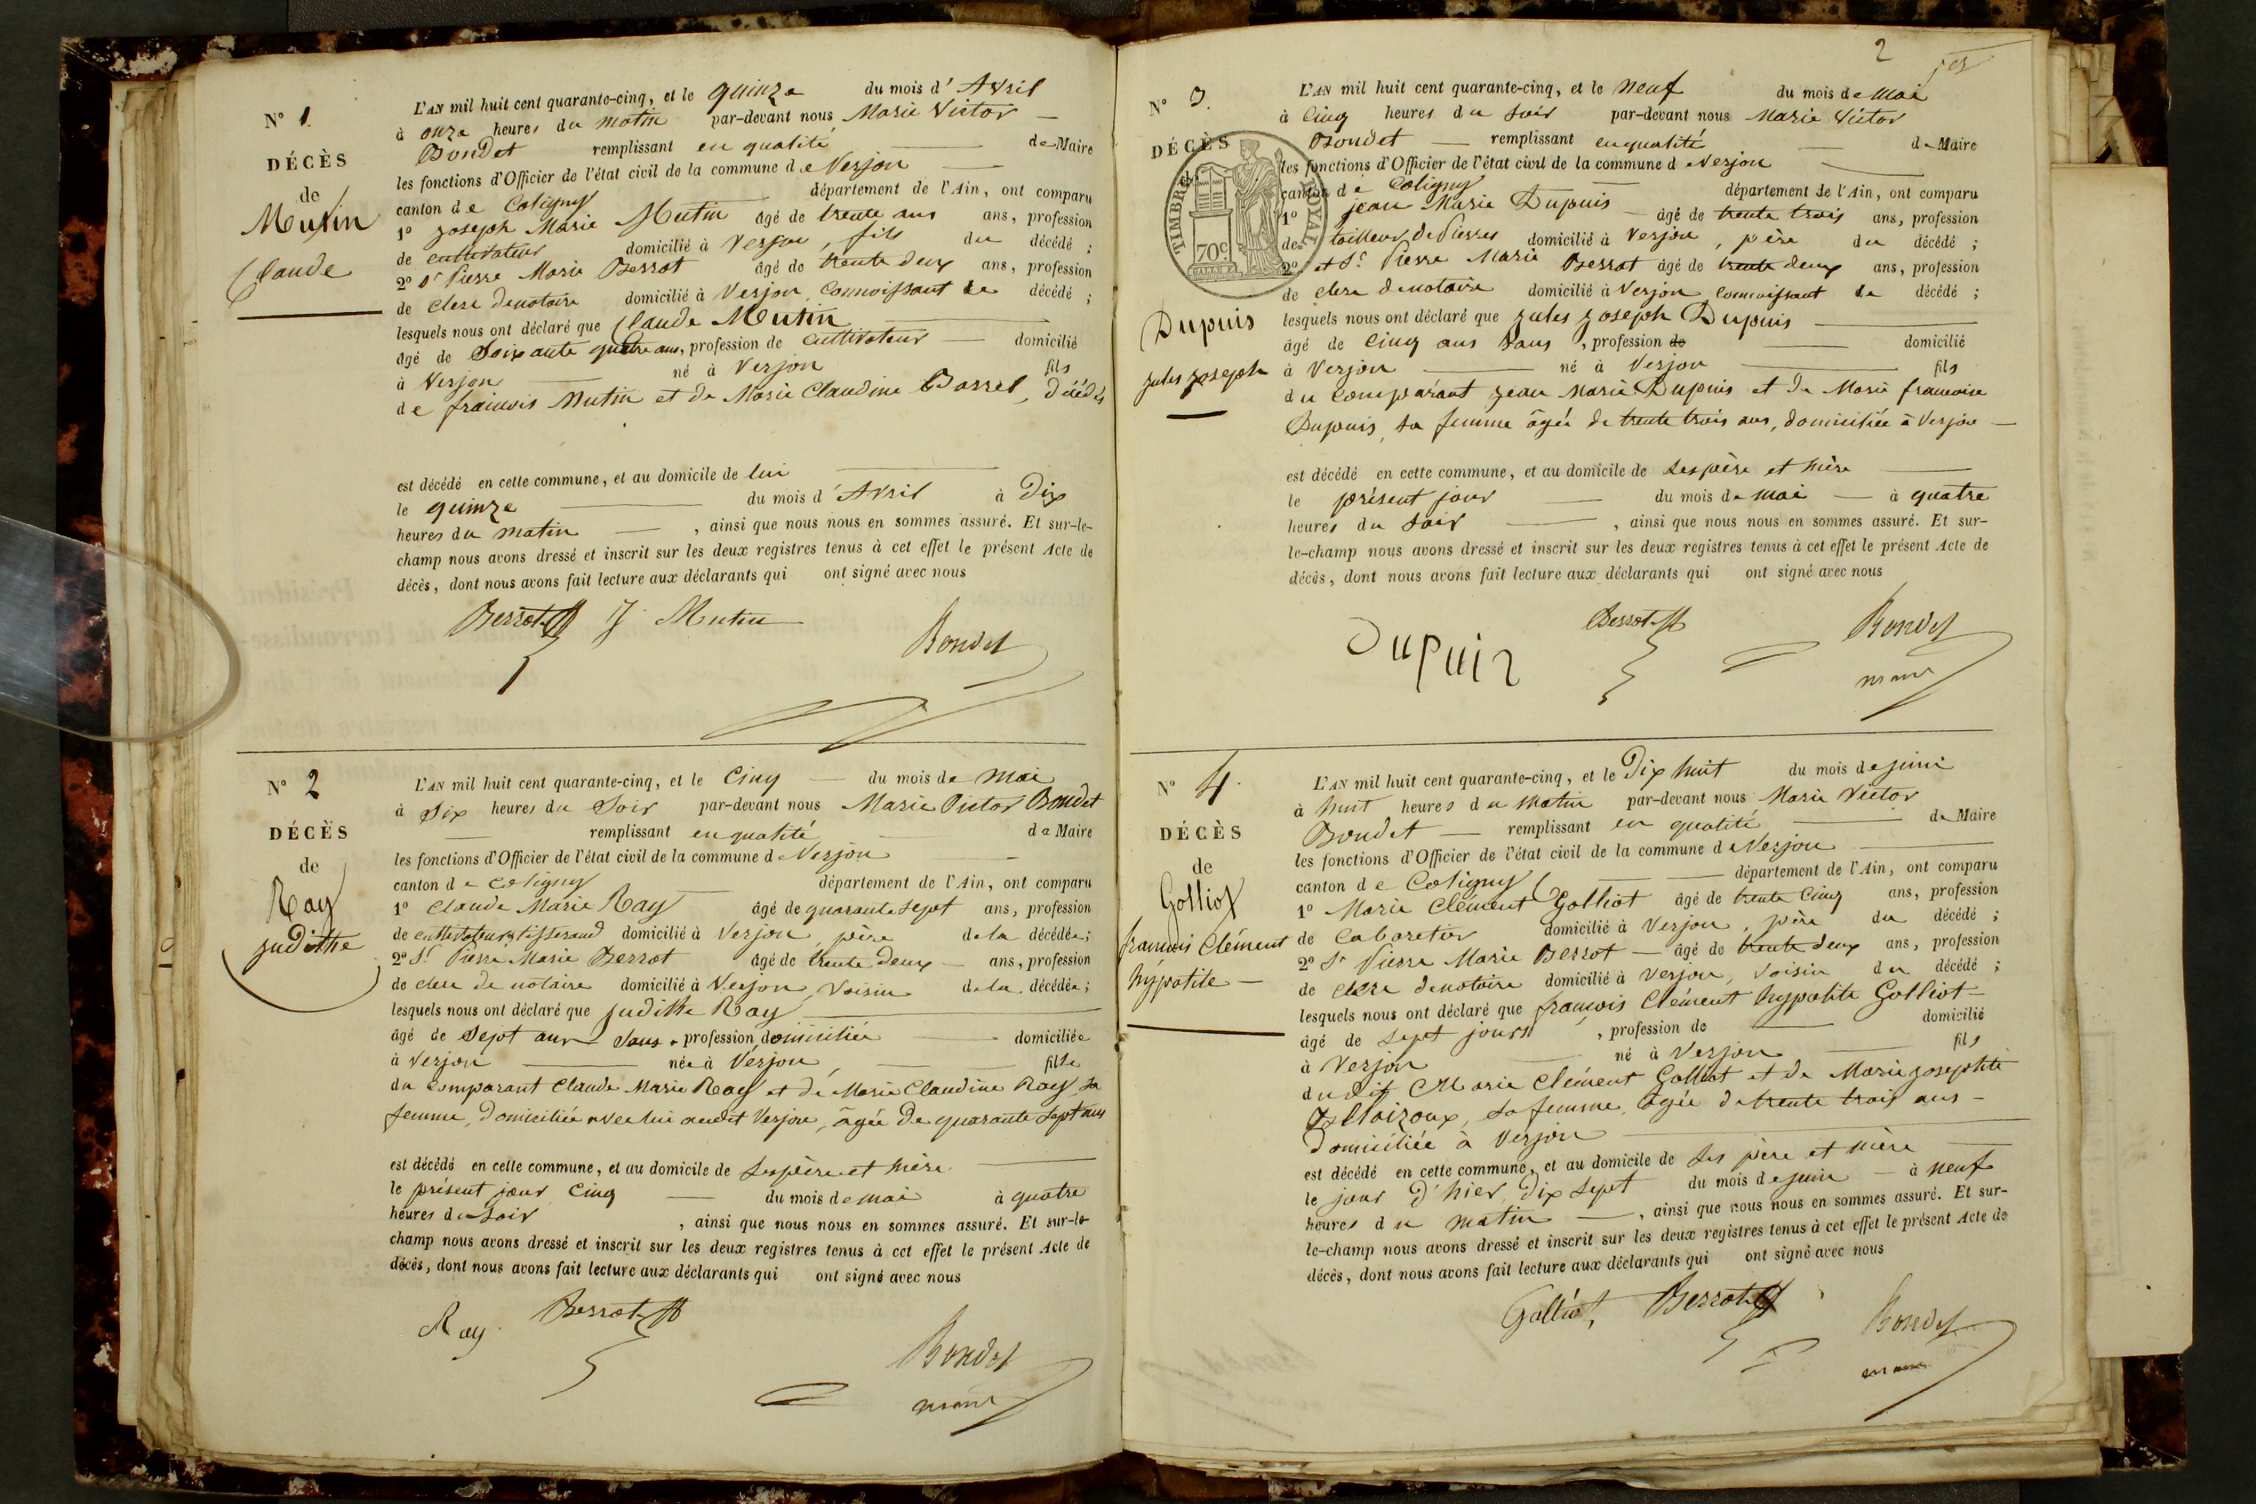 N° 1.
DÉCÈS
de
Mutin
Claude
L'AN mil huit cent quarante-cinq, et le quinze du mois d'Avril
à onze heures du matin par-devant nous Marie Victor
Bondet remplissant en qualité de Maire
les fonctions d'Officier de l'état civil de la commune de Verjon
canton de Coligny département de l'Ain, ont comparu
1° Joseph Marie Mutin âgé de trente ans ans, profession
de cultivateur domicilié à Verjon, fils du décédé ;
2° Sr Pierre Marie Berrot âgé de trente deux ans, profession
de clerc de notaire domicilié à Verjon, connoissant le décédé ;
lesquels nous ont déclaré que Claude Mutin
âgé de soixante quatre ans, profession de cultivateur domicilié
à Verjon né à Verjon fils
de francois Mutin et de Marie Claudine Borrel, décédés
est décédé en cette commune, et au domicile de lui
le quinze du mois d'Avril à Dix
heures du matin, ainsi que nous nous en sommes assuré. Et sur-le-
champ nous avons dressé et inscrit sur les deux registres tenus à cet effet le présent Acte de
décès, dont nous avons fait lecture aux déclarants qui ont signé avec nous
Berrot J. Mutin
Bondet
N° 2
DÉCÈS
de
Ray
judithe
L'AN mil huit cent quarante-cinq, et le cinq du mois de mai
à Six heures du Soir par-devant nous Marie Victor Bondet
remplissant en qualité de Maire
les fonctions d'Officier de l'état civil de la commune de Verjon
canton de Coligny département de l'Ain, ont comparu
1° Claude Marie Ray âgé de quarante sept ans, profession
de cultivateur tisserand domicilié à Verjon, père de la décédée ;
2° Sr Pierre Marie Berrot âgé de trente deux ans, profession
de clerc de notaire domicilié à Verjon, Voisin de la décédée ;
lesquels nous ont déclaré que judithe Ray
âgé de Sept ans Sans profession domiciliée domiciliée
à Verjon née à Verjon fille
du comparant Claude Marie Ray et de Marie Claudine Ray, sa
femme, domiciliée avec lui audit Verjon, âgée de quarante sept ans
est décédé en cette commune, et au domicile de ses père et mère
le présent jour cinq du mois de mai à quatre
heures du soir, ainsi que nous nous en sommes assuré. Et sur-le-
champ nous avons dressé et inscrit sur les deux registres tenus à cet effet le présent Acte de
décès, dont nous avons fait lecture aux déclarants qui ont signé avec nous
Ray Berrot
Bondet
maire
2
N° 3.
DÉCÈS
de
Dupuis
jules joseph
TIMBRE ROYAL
70c
L'AN mil huit cent quarante-cinq, et le neuf du mois de mai
à cinq heures du soir par-devant nous Marie Victor
Bondet remplissant en qualité de Maire
les fonctions d'Officier de l'état civil de la commune de Verjon
canton de Coligny département de l'Ain, ont comparu
1° jean Marie Dupuis âgé de trente trois ans, profession
de tailleur de Pierres domicilié à Verjon, père du décédé ;
2° et Sr Pierre Marie Berrot âgé de trente deux ans, profession
de clerc de notaire domicilié à Verjon, connoissant le décédé ;
lesquels nous ont déclaré que jules joseph Dupuis
âgé de cinq ans sans, profession de domicilié
à Verjon né à Verjon fils
du comparant jean Marie Dupuis et de Marie francoise
Dupuis, sa femme âgée de trente trois ans, domiciliée à Verjon
est décédé en cette commune, et au domicile de ses père et mère
le présent jour du mois de mai à quatre
heures du soir, ainsi que nous nous en sommes assuré. Et sur-
le-champ nous avons dressé et inscrit sur les deux registres tenus à cet effet le présent Acte de
décès, dont nous avons fait lecture aux déclarants qui ont signé avec nous
Dupuis Berrot Bondet
maire
N° 4.
DÉCÈS
de
Golliot
francois Clément
hypolite
L'AN mil huit cent quarante-cinq, et le Dix huit du mois de juin
à huit heures du matin par-devant nous Marie Victor
Bondet remplissant en qualité de Maire
les fonctions d'Officier de l'état civil de la commune de Verjon
canton de Coligny département de l'Ain, ont comparu
1° Marie Clément Golliot âgé de trente cinq ans, profession
de Cabaretier domicilié à Verjon, père du décédé ;
2° Sr Pierre Marie Berrot âgé de trente deux ans, profession
de clerc de notaire domicilié à Verjon, Voisin du décédé ;
lesquels nous ont déclaré que francois Clément hypolite Golliot
âgé de sept jours, profession de domicilié
à Verjon né à Verjon fils
dudit Marie Clément Golliot et de Marie josephte
sa femme, âgée de trente trois ans
Domiciliée à Verjon
est décédé en cette commune, et au domicile de ses père et mère
le jour d'hier, dix sept du mois de juin à neuf
heures du matin, ainsi que nous nous en sommes assuré. Et sur-
le-champ nous avons dressé et inscrit sur les deux registres tenus à cet effet le présent Acte de
décès, dont nous avons fait lecture aux déclarants qui ont signé avec nous
Golliot, Berrot
Bondet
maire